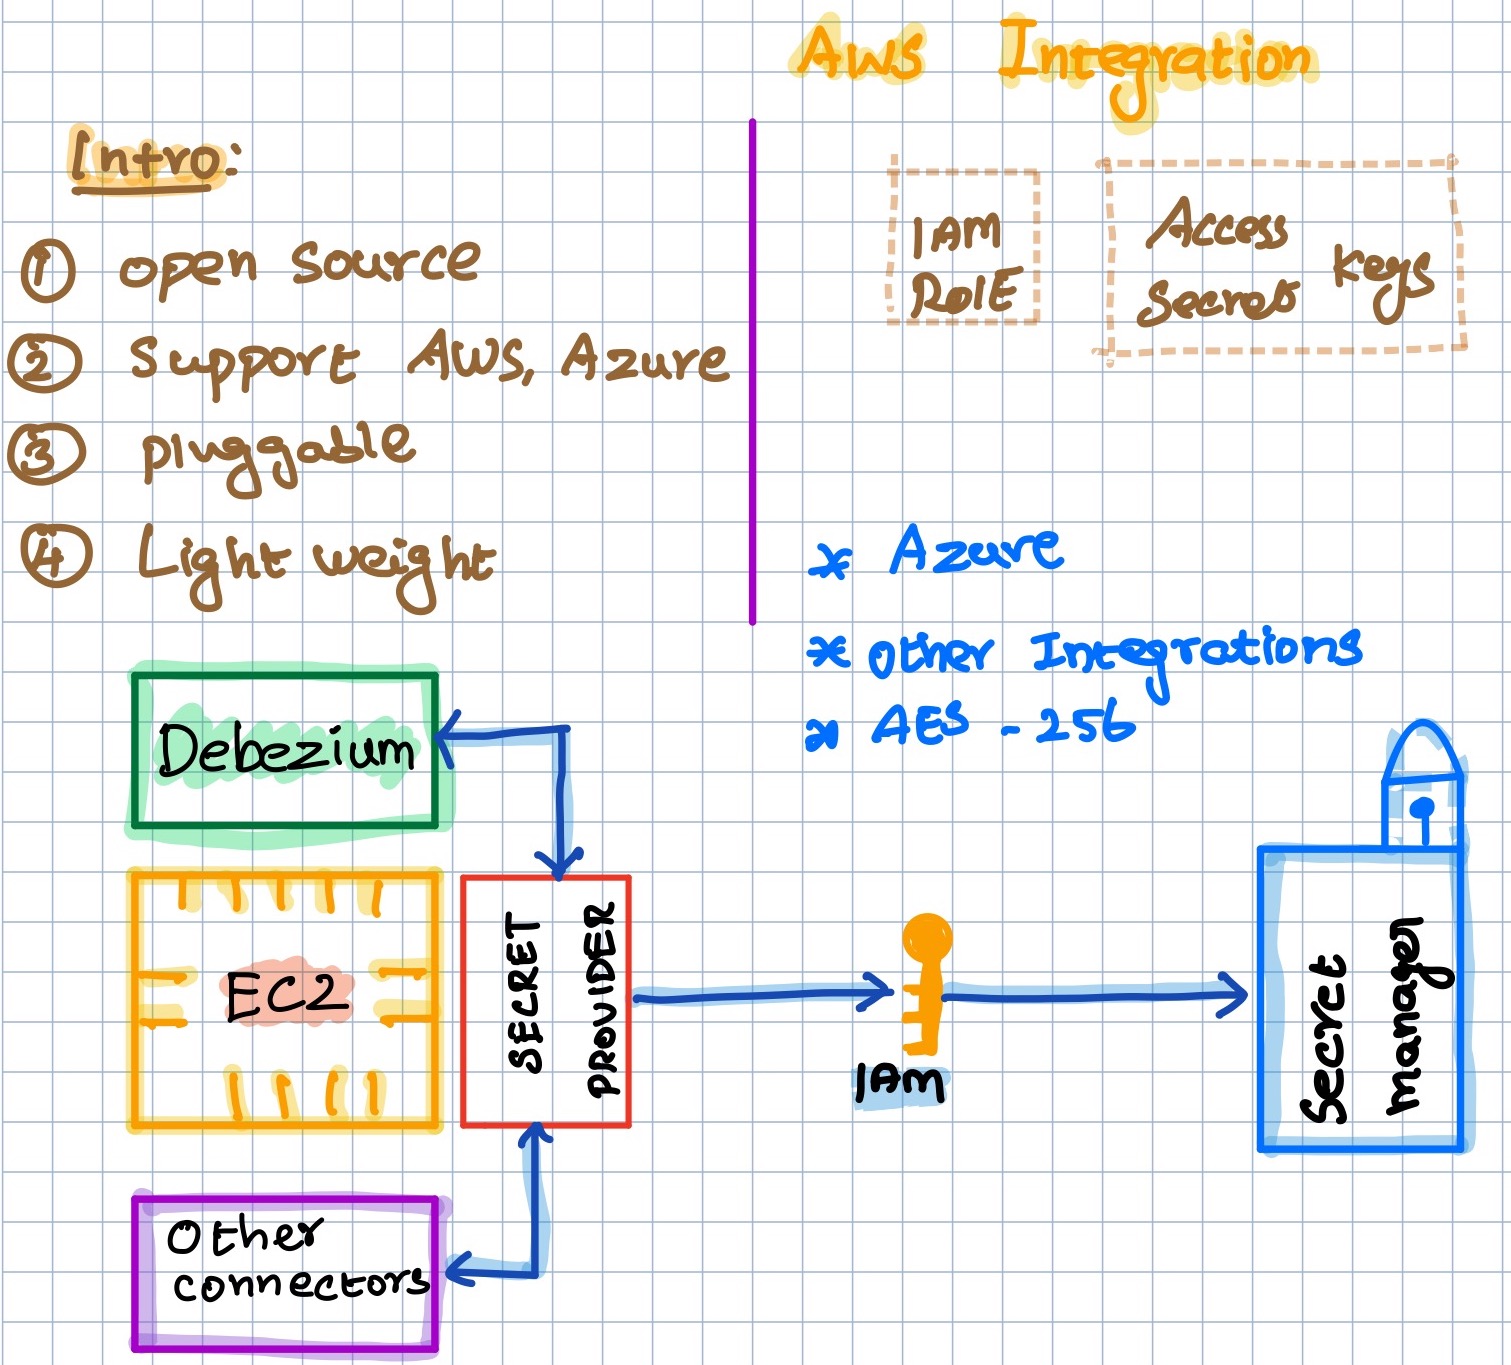 AWS Integration
Intro:
1 open source
2 Support AWS, Azure
3 pluggable
4 Light weight
IAM
ROlE
Access
Secret Keys
* Azure
* other Integrations
* AES - 256
Debezium
EC2
SECRET
PROVIDER
IAM
Secret
manager
Other
connectors